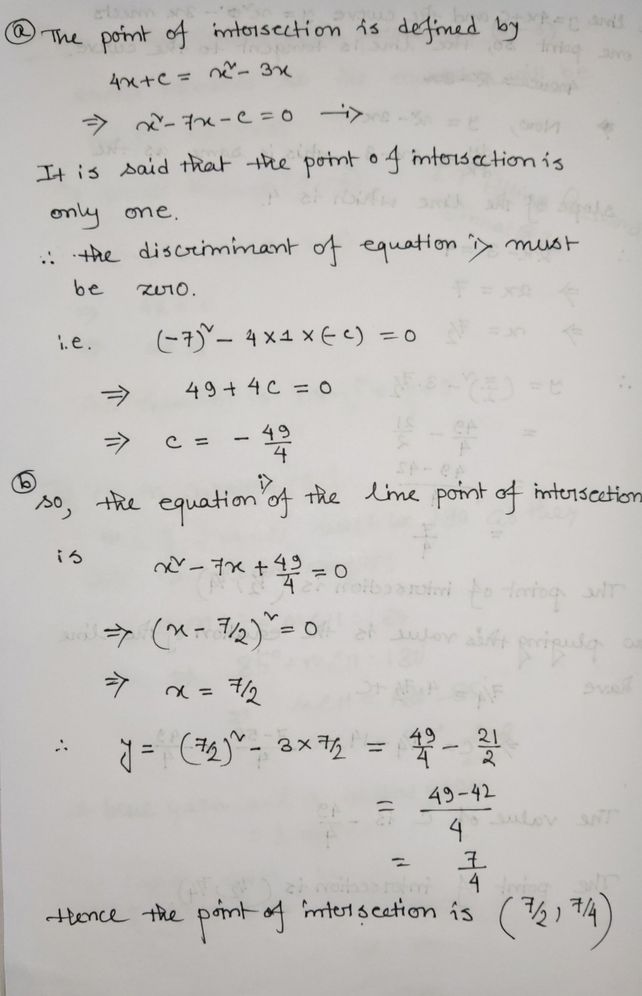 ⓐ The point of intersection is defined by
4x+c = x² - 3x
⇒ x² - 7x - c = 0 —i>
It is said that the point of intersection is
only one.
∴ the discriminant of equation i> must
be zero.
i.e. (-7)² - 4×1×(-c) = 0
⇒ 49 + 4c = 0
⇒ c = - 49/4
ⓑ so, the equation i> of the line point of intersection
is
x² - 7x + 49/4 = 0
⇒ (x - 7/2)² = 0
⇒ x = 7/2
∴ y = (7/2)² - 3 × 7/2 = 49/4 - 21/2
= 49-42/4
= 7/4
Hence the point of intersection is (7/2, 7/4)